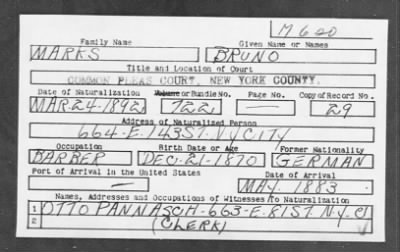 M620
Family Name Given Name or Names
MARKS BRUNO
Title and Location of Court
COMMON PLEAS COURT, NEW YORK COUNTY.
Date of Naturalization Volume or Bundle No. Page No. Copy of Record No.
MAR-24-1892 722 — 29
Address of Naturalized Person
664-E-143ST. NYCITY
Occupation Birth Date or Age Former Nationality
BARBER DEC-21-1870 GERMAN
Port of Arrival in the United States Date of Arrival
— MAY 1883
Names, Addresses and Occupations of Witnesses To Naturalization
1 OTTO PANNASCH-663-E.81ST. N.Y.C
2 (CLERK)